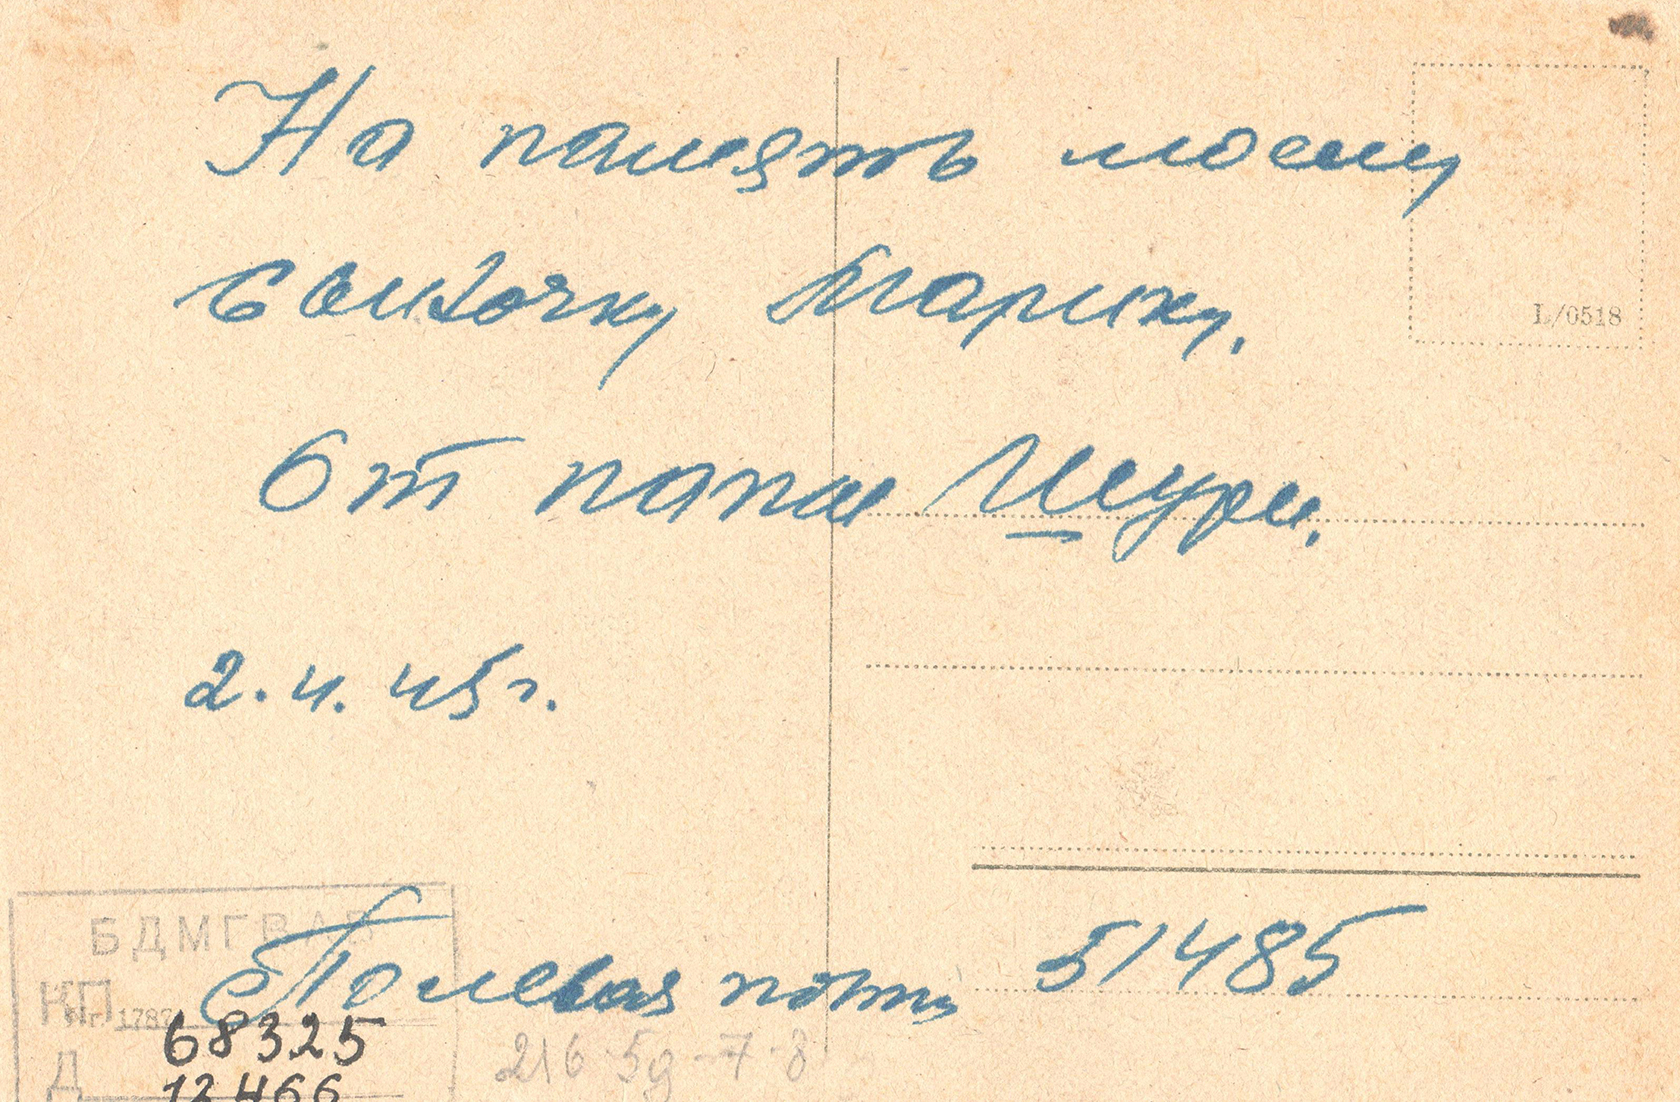 На память моему
сыночку Марику.
L/0518
От папы Шуры.
2.4.45г.
БДМГВАБ
Полевая почта 51485
КП
1787
68325
Д
12466
216-5д-7-8